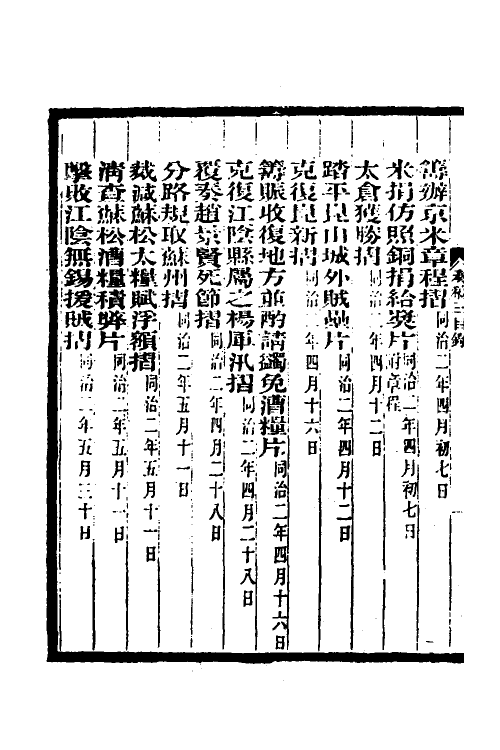 籌辦京米章程摺同治二年四月初七日
米捐仿照銅捐給獎片附章程同治二年四月初七日
太倉獲勝摺同治二年四月十二日
踏平崑山城外賊壘片同治二年四月十二日
克復崑新摺同治二年四月十六日
籌賑收復地方並酌請蠲免漕糧片同治二年四月十六日
克復江陰縣屬之楊厙汛摺同治二年四月二十八日
覆奏趙景賢死節摺同治二年四月二十八日
分路規取蘇州摺同治二年五月十一日
裁減蘇松太糧賦浮額摺同治二年五月十一日
清查蘇松漕糧積弊片同治二年五月十一日
擊敗江陰無錫援賊摺同治二年五月三十日
奏稿三目錄